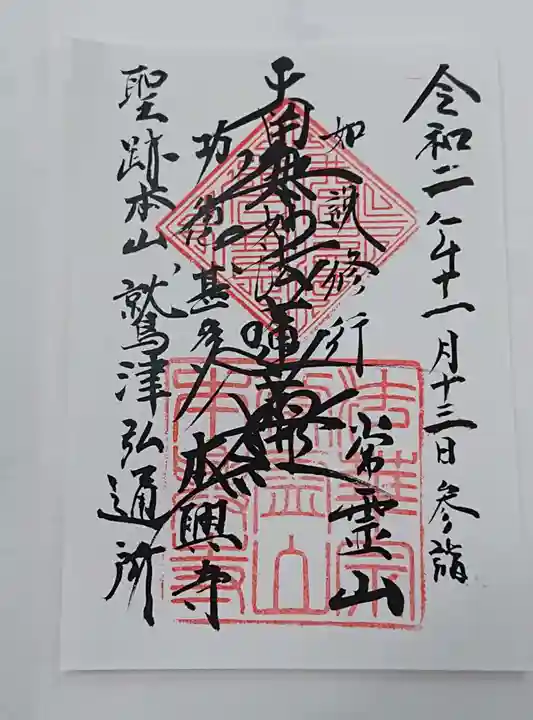 令和二年十一月十三日参詣
如説修行 常霊山
南無妙法蓮華経
功徳甚多 本興寺
聖跡本山 鷲津弘通所
法華宗
常霊山
本興寺